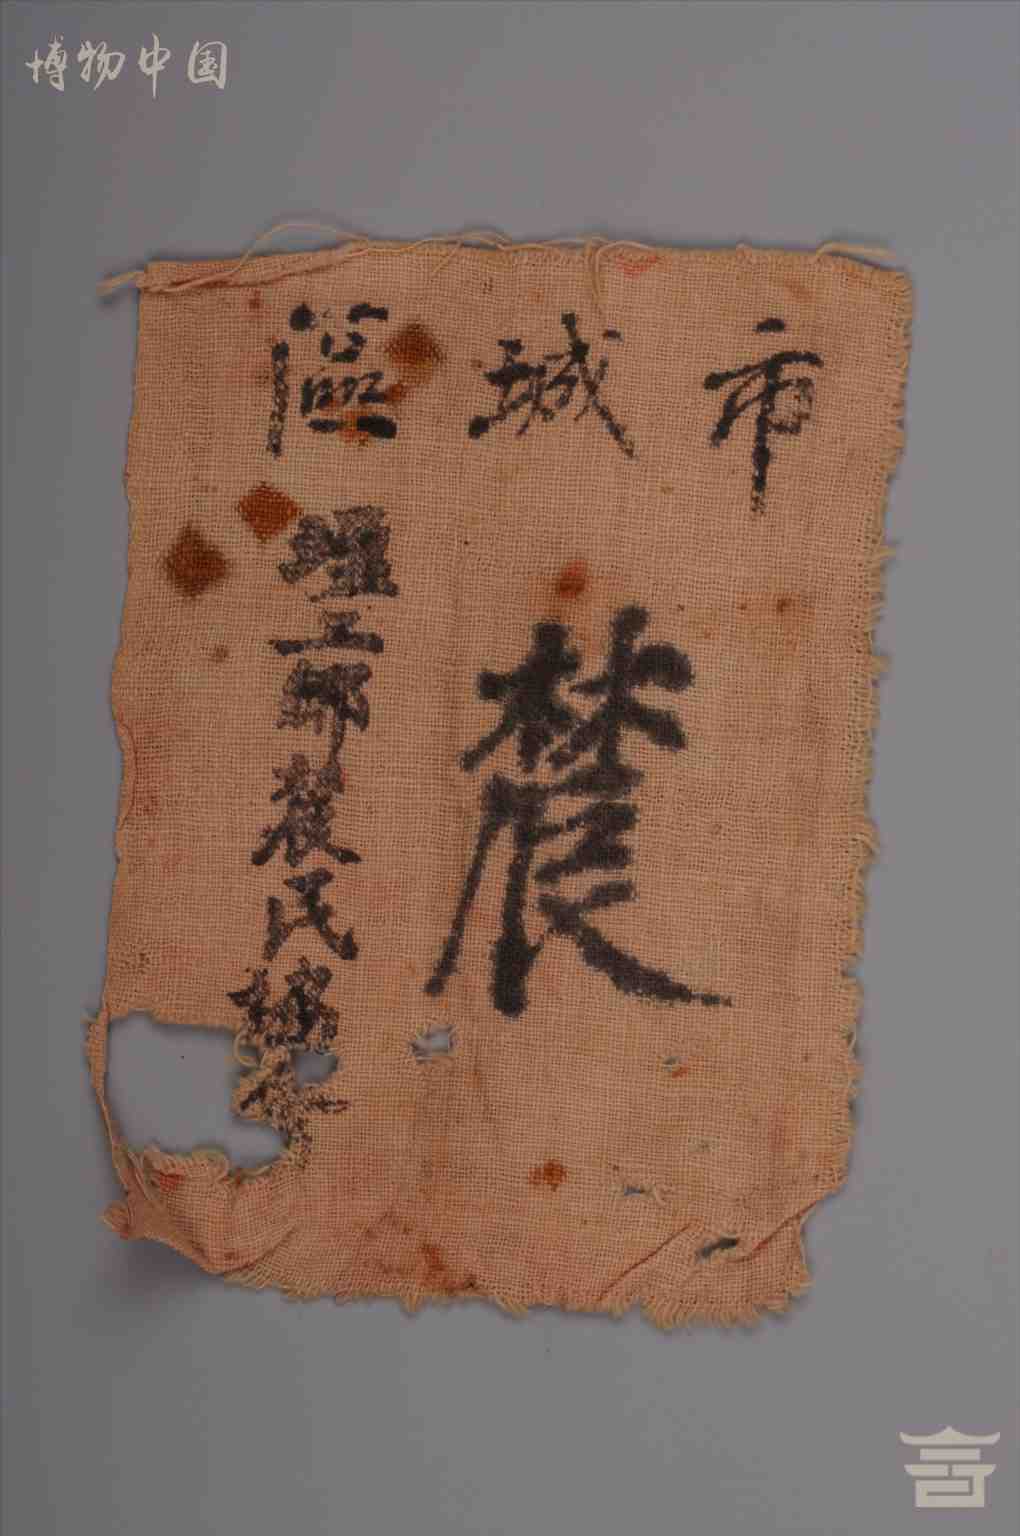 博物中国
市城區
農
理工鄉農民協會